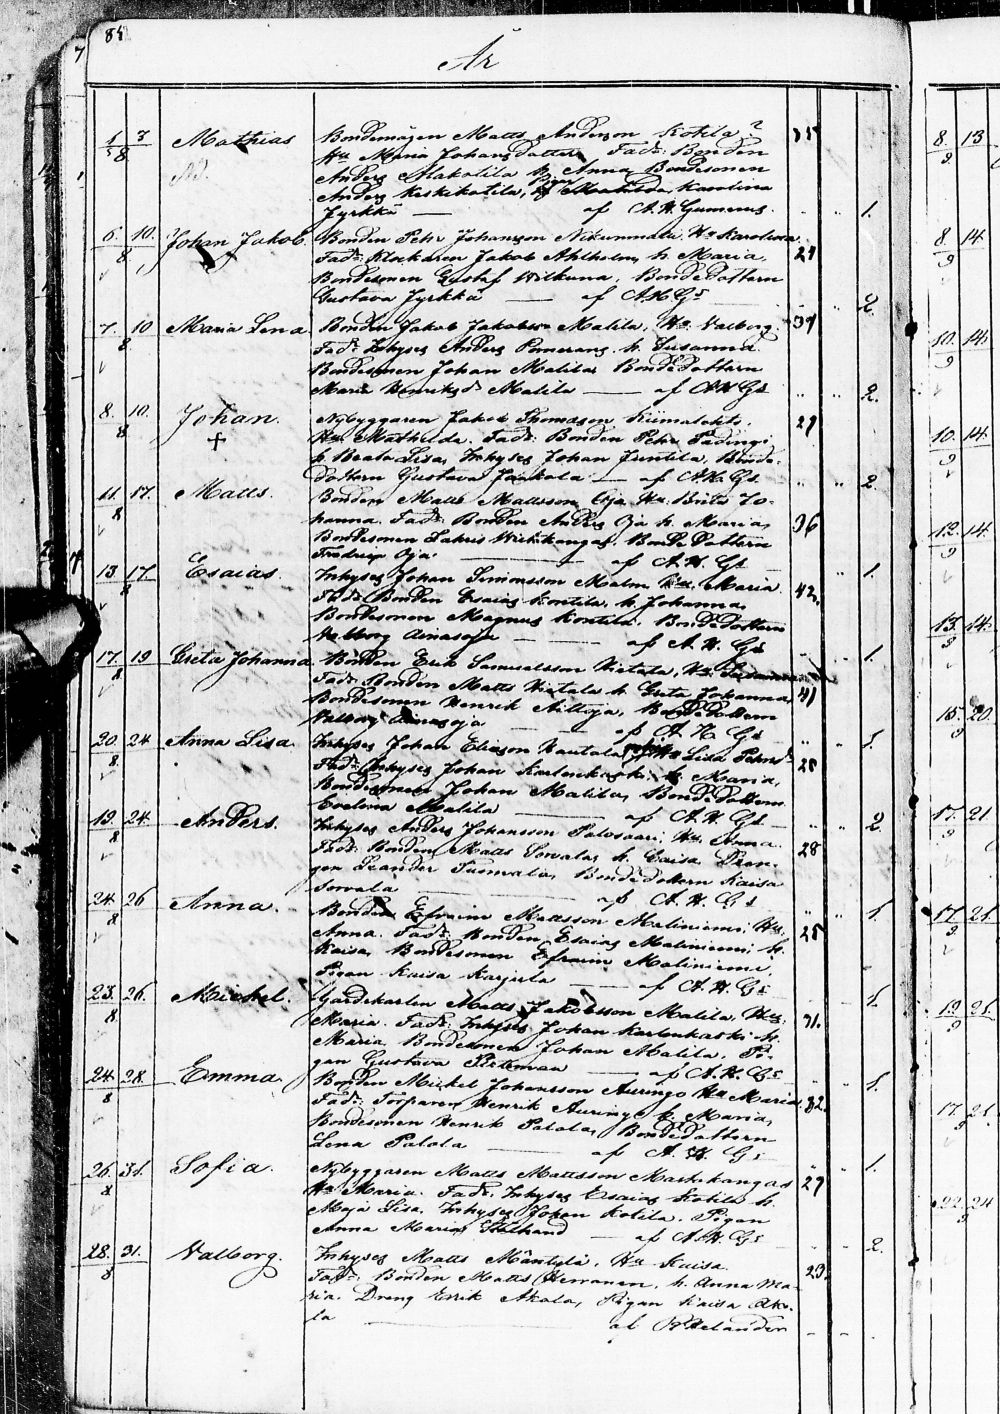 85
År
1 3 Mathias Bondemågen Matts Anderson Kotila 35
8 Hu Maria Johansdotter Fadr: Bonden
Anders Alakotila h. Anna Bondesonen
Anders Keskikotila, Pigan Karolina
Jyrkkä — af A. H. Gumerus. 1.
6. 10. Johan Jakob. Bonden Petr Johansson Nikunmaa Hu Karolina 24
8 Fadr: Klockaren Jakob Ahlholm h. Maria,
Bondesonen Gustaf Wilkuna, Bondedottern
Gustava Jyrkkä — af A H Gs 2.
7. 10 Maria Lena Bonden Jakob Jakobsson Malila, Hu Valborg. 39
8 Fadr: Inhyses Anders Pomerans h. Susanna.
Bondesonen Johan Malila, Bondedottern
Maria Henriksd. Malila — af A H Gs 2.
8. 10. Johan. Nybyggaren Jakob Thomasson Kiimalehto, 29
8 † Hu Mathilda. Fadr: Bonden Petr
h Beata Lisa, Inhyses Johan Juntila, Bonde-
dottern Gustava Jaakola — af A H. Gs 2.
11. 17. Matts. Bonden Matts Mattsson Oja Hu Brita Jo-
8 hanna. Fadr: Bonden Anders Oja h. Maria, 36
Bondesonen Wirkkangas. Bondedottern
Oja — af A. H. Gs 1.
13. 17 Esaias. Inhyses Johan Simonsson Malm Hu Maria 42.
8 Fadr: Bonden Esaias Kontila, h. Johanna,
Bondesonen Magnus Kontila. Bondedottern
Valborg Ainasoja — af A. H. Gs 1.
17. 19 Greta Johanna Bonden Erik Samuelsson Hietala, Hu
8 Fadr: Bonden Matts Hietala h Greta Johanna, 41
Bondesonen Henrik Aittoja, Bondedottern
Valborg Ainasoja — af A H Gs 1.
20. 24 Anna Lisa. Inhyses Johan Eliasson Rautola Hu Lisa Petersd. 25
8 Fadr: Inhyses Johan Karlunkaski h. Maria,
Bondesonen Johan Malila, Bondedottern
Evelina Malila — af A. H. Gs 2.
19. 24. Anders. Inhyses Anders Johansson Palosaari, Hu Anna. 28
8 Fadr: Bonden Matts Sorvala, h. Caisa. Drän-
gen Leander Tuomala, Bondedottern Kaisa
Sorvala — af A. H. Gs 1.
24. 26 Anna. Bonden Efraim Mattsson Maliniemi, Hu
8 Anna. Fadr: Bonden Esaias Maliniemi h. 25
Kaisa, Bondesonen Efraim Maliniemi,
Pigan Kaisa Karjula — af A. H. Gs 1.
23. 26. Mickel. Gårdskarlen Matts Jakobsson Malila, Hu
8 Maria. Fadr: Inhyses Johan Karlunkaski h. 31.
Maria. Bondesonen Johan Malila. Pi-
gan Gustava — af A. H. Gs 1.
24. 28. Emma. Bonden Mickel Johansson Auringo Hu Maria 32.
8 Fadr: Torparen Henrik Auringo h. Maria,
Bondesonen Henrik Palola, Bondedottern
Lena Palola — af A. H. Gs 1.
26. 31. Sofia. Nybyggaren Matts Mattsson Mastokangas 29
8 Hu Maria. Fadr: Inhyses Esaias Kotila h.
Maja Lisa. Inhyses Johan Kotila. Pigan
Anna Maria Stålhand — af A. H. Gs 2.
28. 31. Valborg. Inhyses Matts Mäntylä, Hu Kaisa. 23.
8 Fadr: Bonden Matts Herranen, h. Anna Ma-
ria. Dreng Errik Akola, Pigan Kaisa Ako-
la — af Helander
8. 13
8. 14
9
10. 14.
9
10. 14.
9
12. 14.
9
13. 14.
9
15. 20.
9
17. 21
9
17. 21.
9
19. 21.
9
17. 21.
9
22. 24
9